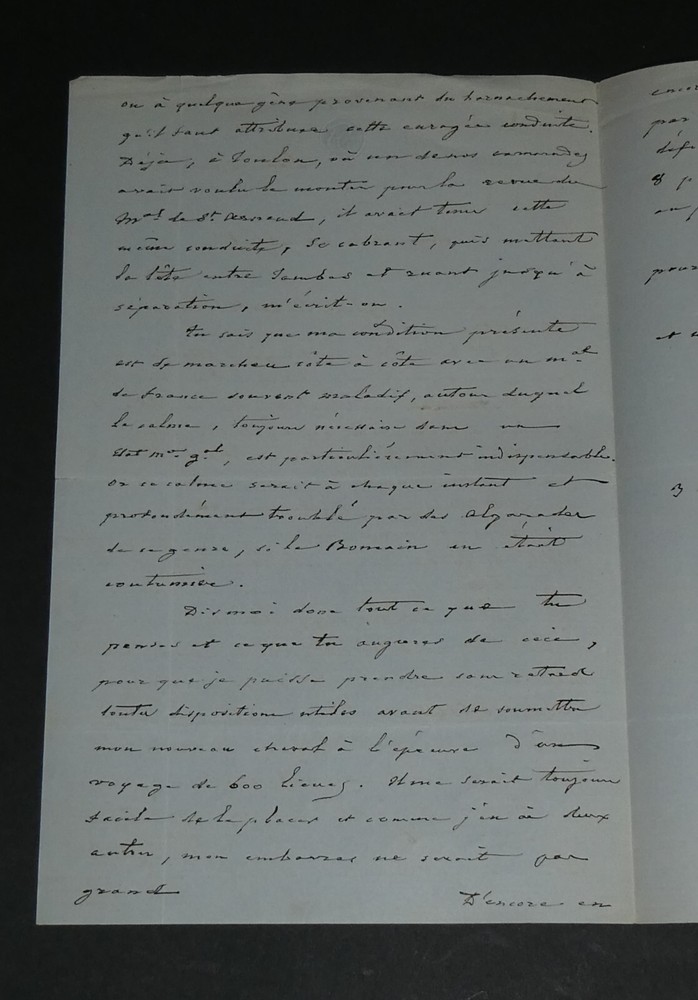 ou à quelque gêne provenant du harnachement
qu'il faut attribuer cette enragée conduite.
Déjà, à Toulon, où un de nos camarades
avait voulu le monter pour la revue du
Mal de St Arnaud, il avait tenu cette
même conduite, se cabrant, puis mettant
la tête entre jambes et ruant jusqu'à
séparation, m'écrit-on.
Tu sais que ma condition présente
est de marcher côte à côte avec un mal
de France souvent maladif, autour duquel
le calme, toujours nécessaire dans un
Etat mor gal, est particulièrement indispensable.
Or ce calme serait à chaque instant et
profondément troublé par des algarades
de ce genre, si le Romain en était
coutumier.
Dis moi donc tout ce que tu
penses et ce que tu augures de ceci,
pour que je puisse prendre sans retard
toutes dispositions utiles avant de soumettre
mon nouveau cheval à l'épreuve d'un
voyage de 600 lieues. Il me serait toujours
facile de le placer et comme j'en ai deux
autres, mon embarras ne serait pas
grand
D'encore en
encor
par
défi
8 p
pour
et
3